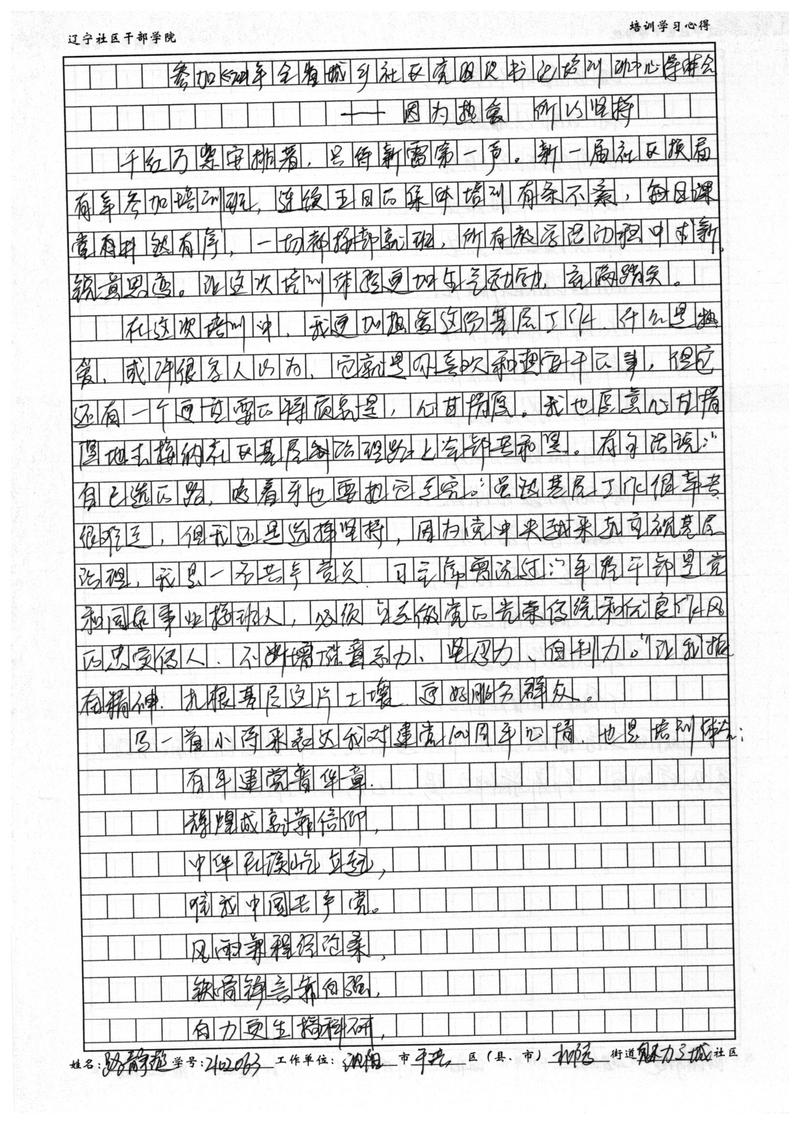 辽宁社区干部学院
培训学习心得
参加2021年全省城乡社区党组织书记培训班心得体会
——因为热爱 所以坚持
千红万紫安排著,只待新雷第一声。新一届社区换届
有幸参加培训班,连续五日的集中培训有条不紊,每日课
堂有井然有序,一切都按部就班,所有教学活动稳中求新
锐意思变。让这次培训体验更加生气动力,充满踏实。
在这次培训中,我更加热爱这份基层工作,什么是热
爱,或许很多人以为,它就是你喜欢和想要干的事,但它
还有一个更重要的得前提是,心甘情愿。我也愿意心甘情
愿地去接纳社区基层 路上全部 。有句话说:"
自己选的路,咬着牙也要把它走完。"虽说基层工作很辛苦
很难走,但我还是选择坚持,因为党中央越来越重视基层
治理,我是一名共产党员,习主席曾说过:"年轻干部是党
和国家事业接班人,必须立志做党的光荣传统和优良作风
的忠实传人,不断增强意志力、坚忍力、自制力。"让我振
奋精神,扎根基层这片土壤,更好服务群众。
写一首小诗来表达我对建党100周年心情,也是培训体会:
百年建党谱华章,
辉煌成就靠信仰,
中华民族屹立起,
唯我中国共产党。
风雨兼程经沧桑,
铁骨铮言靠自强,
自力更生搞科研,
姓名: 路静 学号:2102063 工作单位: 沈阳 市 于洪 区(县、市) 街道 魅力之城 社区